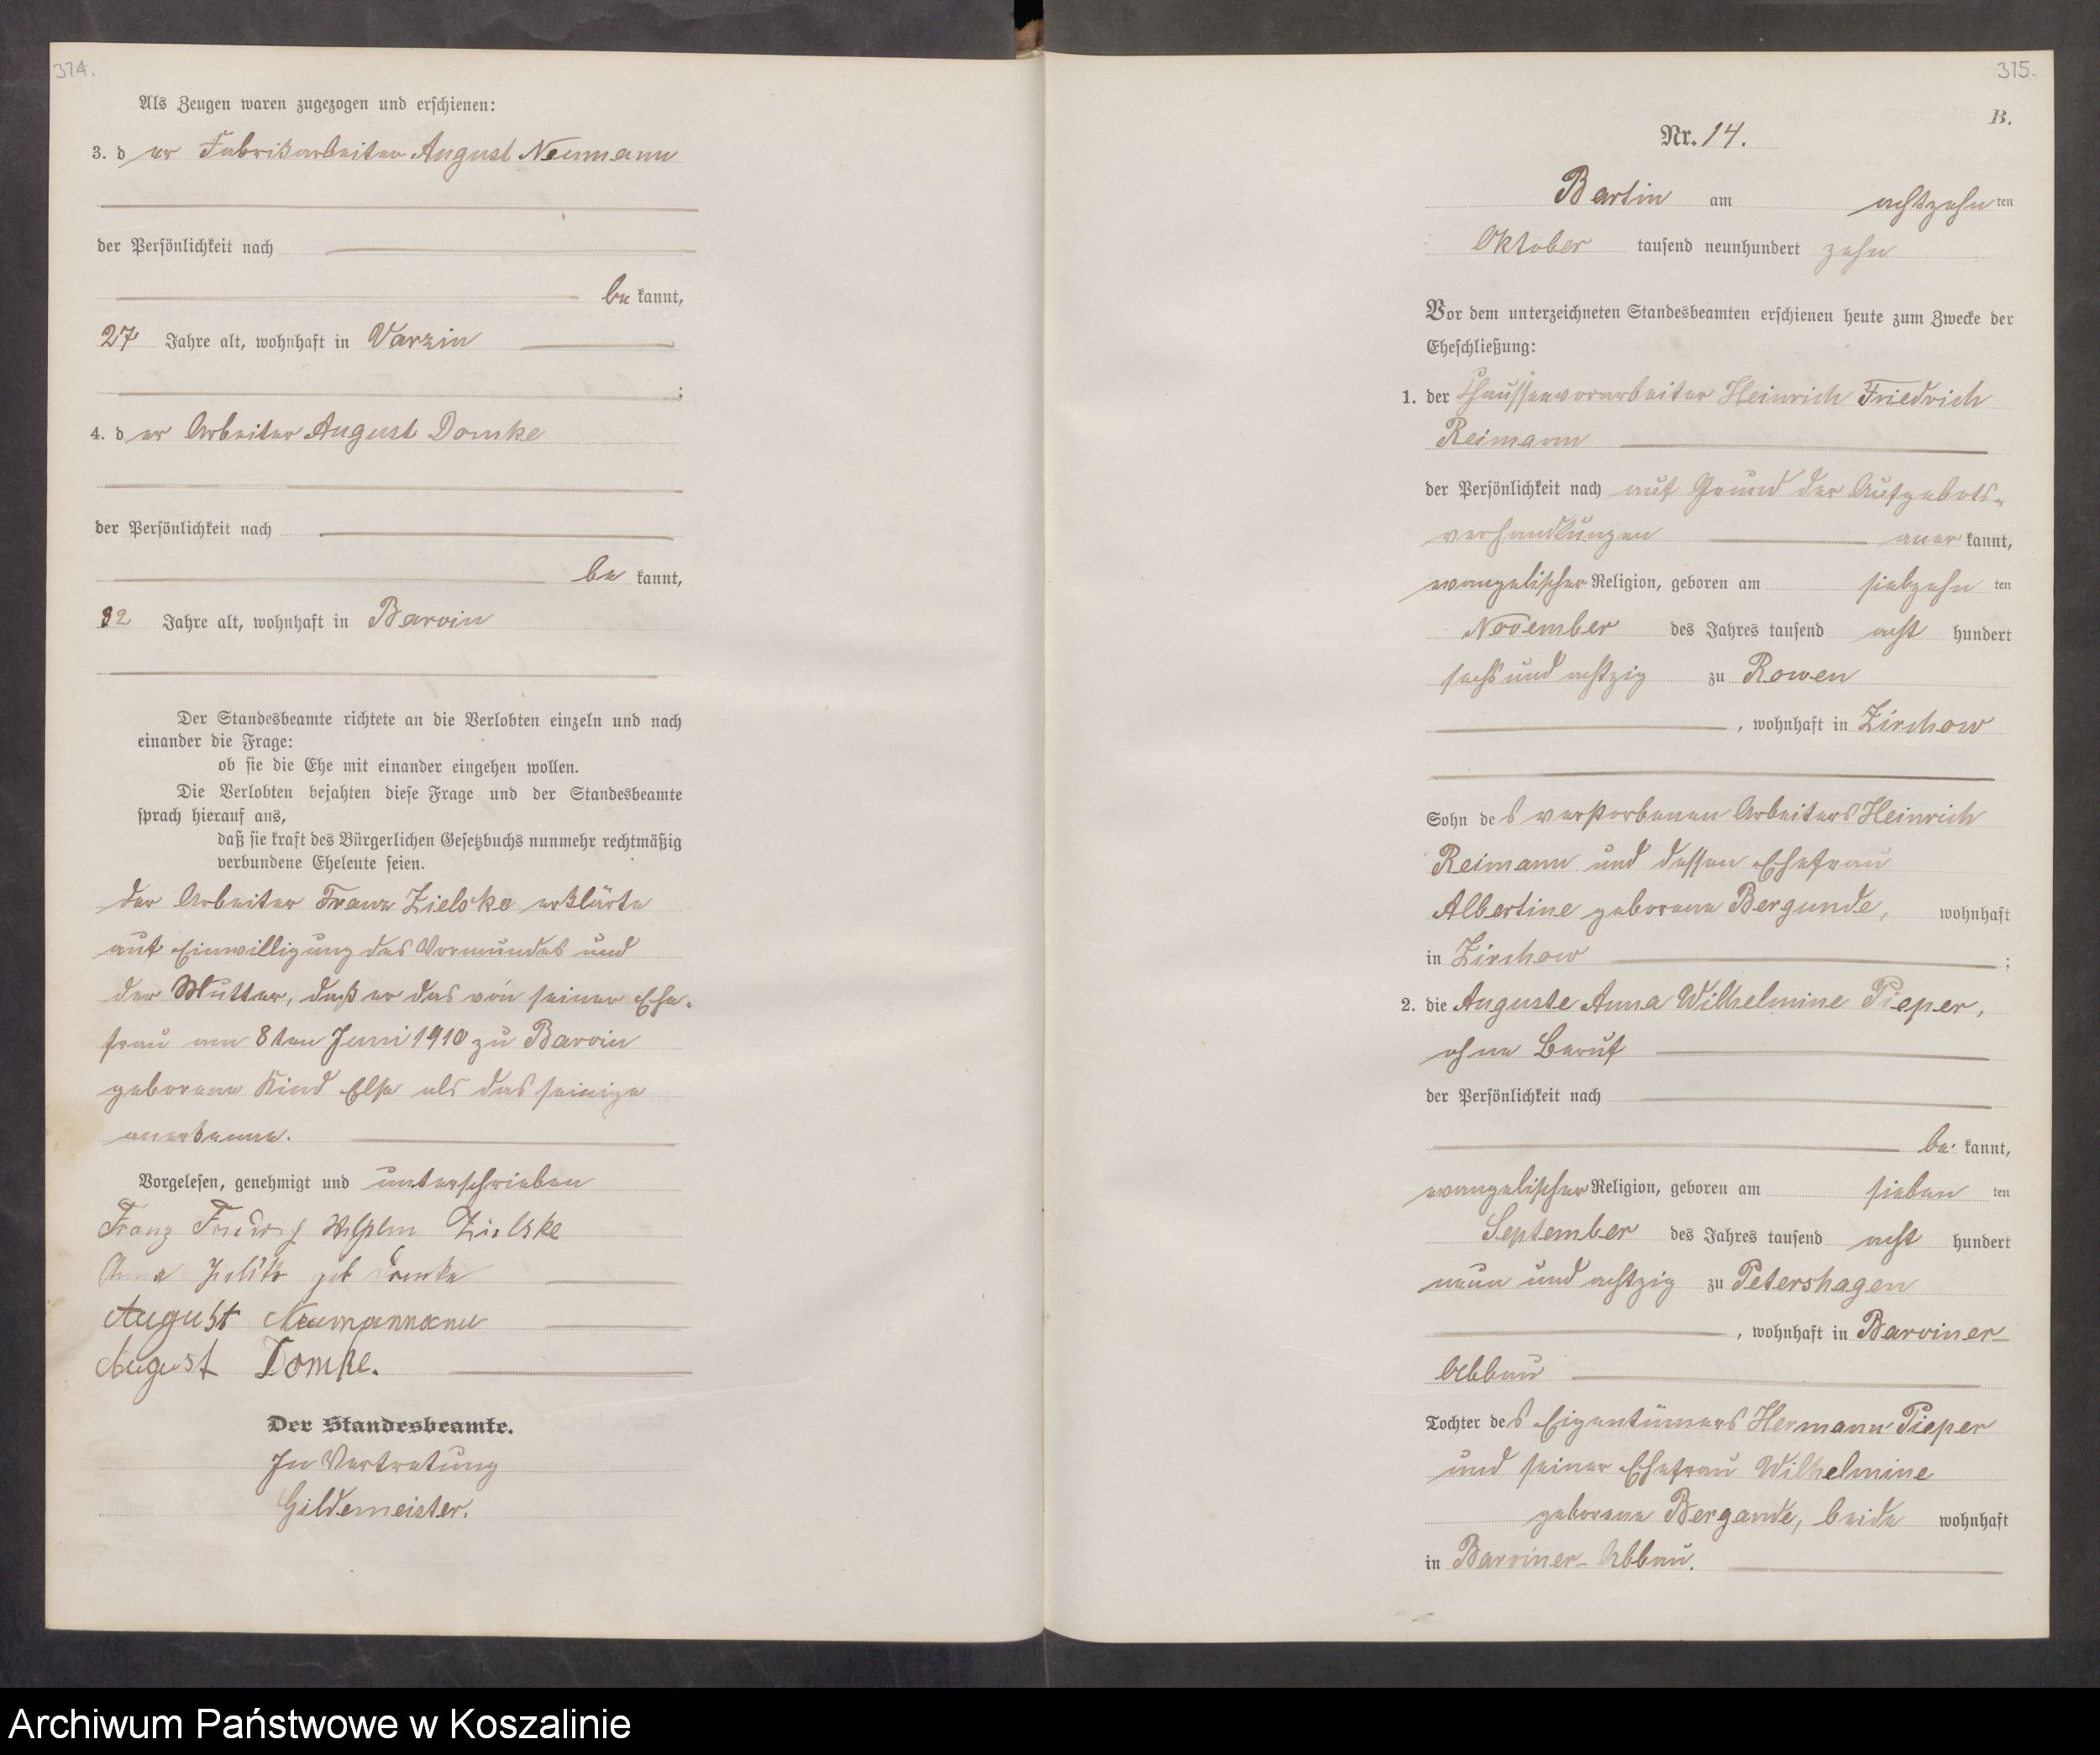 374.
Als Zeugen waren zugezogen und erschienen:
3. d er Fabrikarbeiter August Neumann
der Persönlichkeit nach
be kannt,
27 Jahre alt, wohnhaft in Varzin
;
4. d er Arbeiter August Domke
der Persönlichkeit nach
be kannt,
32 Jahre alt, wohnhaft in Barvin
Der Standesbeamte richtete an die Verlobten einzeln und nach
einander die Frage:
ob sie die Ehe mit einander eingehen wollen.
Die Verlobten bejahten diese Frage und der Standesbeamte
sprach hierauf aus,
daß sie kraft des Bürgerlichen Gesetzbuchs nunmehr rechtmäßig
verbundene Eheleute seien.
der Arbeiter Franz Zielske erklärte
auf Einwilligung des Vormundes und
der Mutter, daß er das von seiner Ehe-
frau am 8ten Juni 1910 zu Barvin
geborene Kind Else als das seinige
anerkenne.
Vorgelesen, genehmigt und unterschrieben
Franz Zielske
Anna geb Domke
August
August Domke.
Der Standesbeamte.
In Vertretung
Gildemeister.
375.
B.
Nr. 14.
Bartin am achtzehn ten
Oktober tausend neunhundert zehn
Vor dem unterzeichneten Standesbeamten erschienen heute zum Zwecke der
Eheschließung:
1. der Chausseevorarbeiter Heinrich Friedrich
Reimann
der Persönlichkeit nach auf Grund der Aufgebots-
verhandlungen aner kannt,
evangelischer Religion, geboren am siebzehn ten
November des Jahres tausend acht hundert
sechs und achtzig zu Rowen
, wohnhaft in Zirchow
Sohn des verstorbenen Arbeiters Heinrich
Reimann und dessen Ehefrau
Albertine geborene Bergunde, wohnhaft
in Zirchow ;
2. die Auguste Anna Wilhelmine Pieper,
ohne Beruf
der Persönlichkeit nach
be kannt,
evangelischer Religion, geboren am sieben ten
September des Jahres tausend acht hundert
neun und achtzig zu Petershagen
, wohnhaft in Barviner-
Abbau
Tochter des Eigentümers Hermann Pieper
und seiner Ehefrau Wilhelmine
geborene Bergande, beide wohnhaft
in Barviner-Abbau.
Archiwum Państwowe w Koszalinie